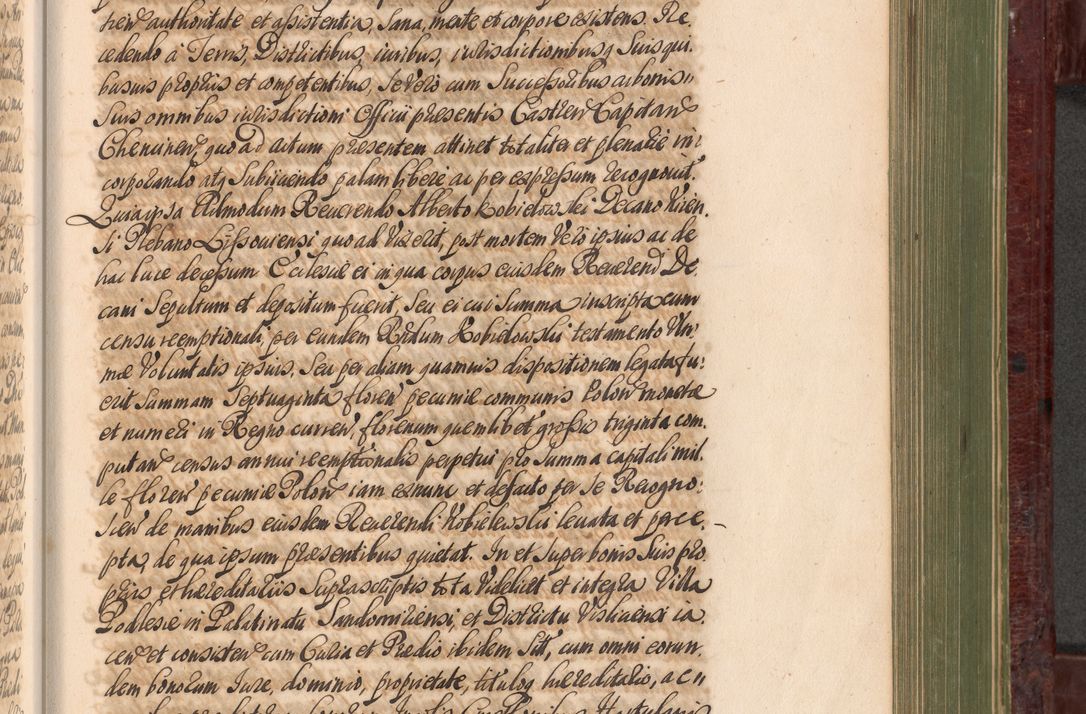 hen̄ authoritate et assistentia, sana, mente et corpore existens. Re
cedendo à Terris, Districtibus, iuribus, iurisdictionibusq̃ suis qui
busuis proprijs et competentibus, se vero cum Successoribus ac bonis
suis omnibus iurisdictioni Officij præsentis Castren̄ Capitan̄
Checinen̄, quo ad actum præsentem attinet totaliter et plenarie in
corporando atq̃ subijciendo palam libere ac per expressum recognouit.
Quia ipsa Admodum Reuerendo Alberto Kobielowski Decano Kiien
si Plebano Lissouiensi quo ad vixerit, post mortem vero ipsius ac de
hac luce decessum Ecclesiæ ei in qua corpus eiusdem Reuerendi De
cani sepultum et depositum fuerit, seu ei cui summa inscripta cum
censu reemptionali, per eundem Rn̄dum Kobielowski testamento Ulti
mæ Voluntatis ipsius, seu per aliam quamuis dispositionem legata fu:
erit summam Septuaginta floren̄ pecuniæ communis Polon̄ monetæ
et numeri in Regno curren̄, florenum quemlibet grossis triginta com
putan̄ census annui reemptionalis perpetui pro summa capitali mil
le floren̄ pecuniæ Polon̄ iam ex nunc et de facto per se Recogno:
scen̄ de manibus eiusdem Reuerendi Kobielowski leuata et perce
pta, de qua ipsum præsentibus quietat. In et super bonis suis pro
prijs et hæreditarijs suprascriptis tota videlicet et integra Villa
Podlesie in Palatinatu Sandomiriensi, et Districtu Visliciensi ia
cen̄ et consisten̄ cum Curia et Prædio ibidem sitt, cum omni eorun
dem bonorum Jure, dominio, proprietate, tituloq̃ hæreditario, ac